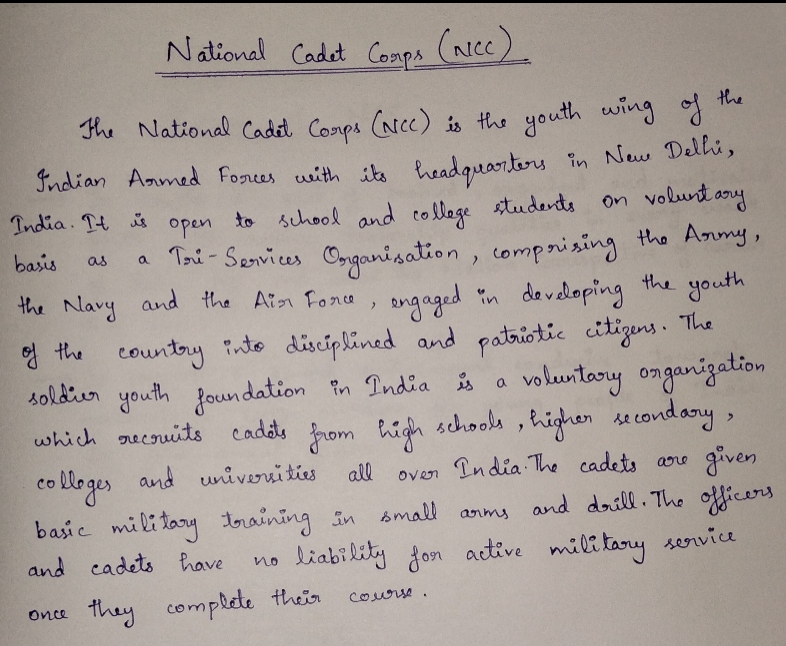 National Cadet Corps (NCC)
The National Cadet Corps (NCC) is the youth wing of the
Indian Armed Forces with its headquarters in New Delhi,
India. It is open to school and college students on voluntary
basis as a Tri-Services Organisation, comprising the Army,
the Navy and the Air Force, engaged in developing the youth
of the country into disciplined and patriotic citizens. The
soldier youth foundation in India is a voluntary organization
which recruits cadets from high schools, higher secondary,
colleges and universities all over India. The cadets are given
basic military training in small arms and drill. The officers
and cadets have no liability for active military service
once they complete their course.